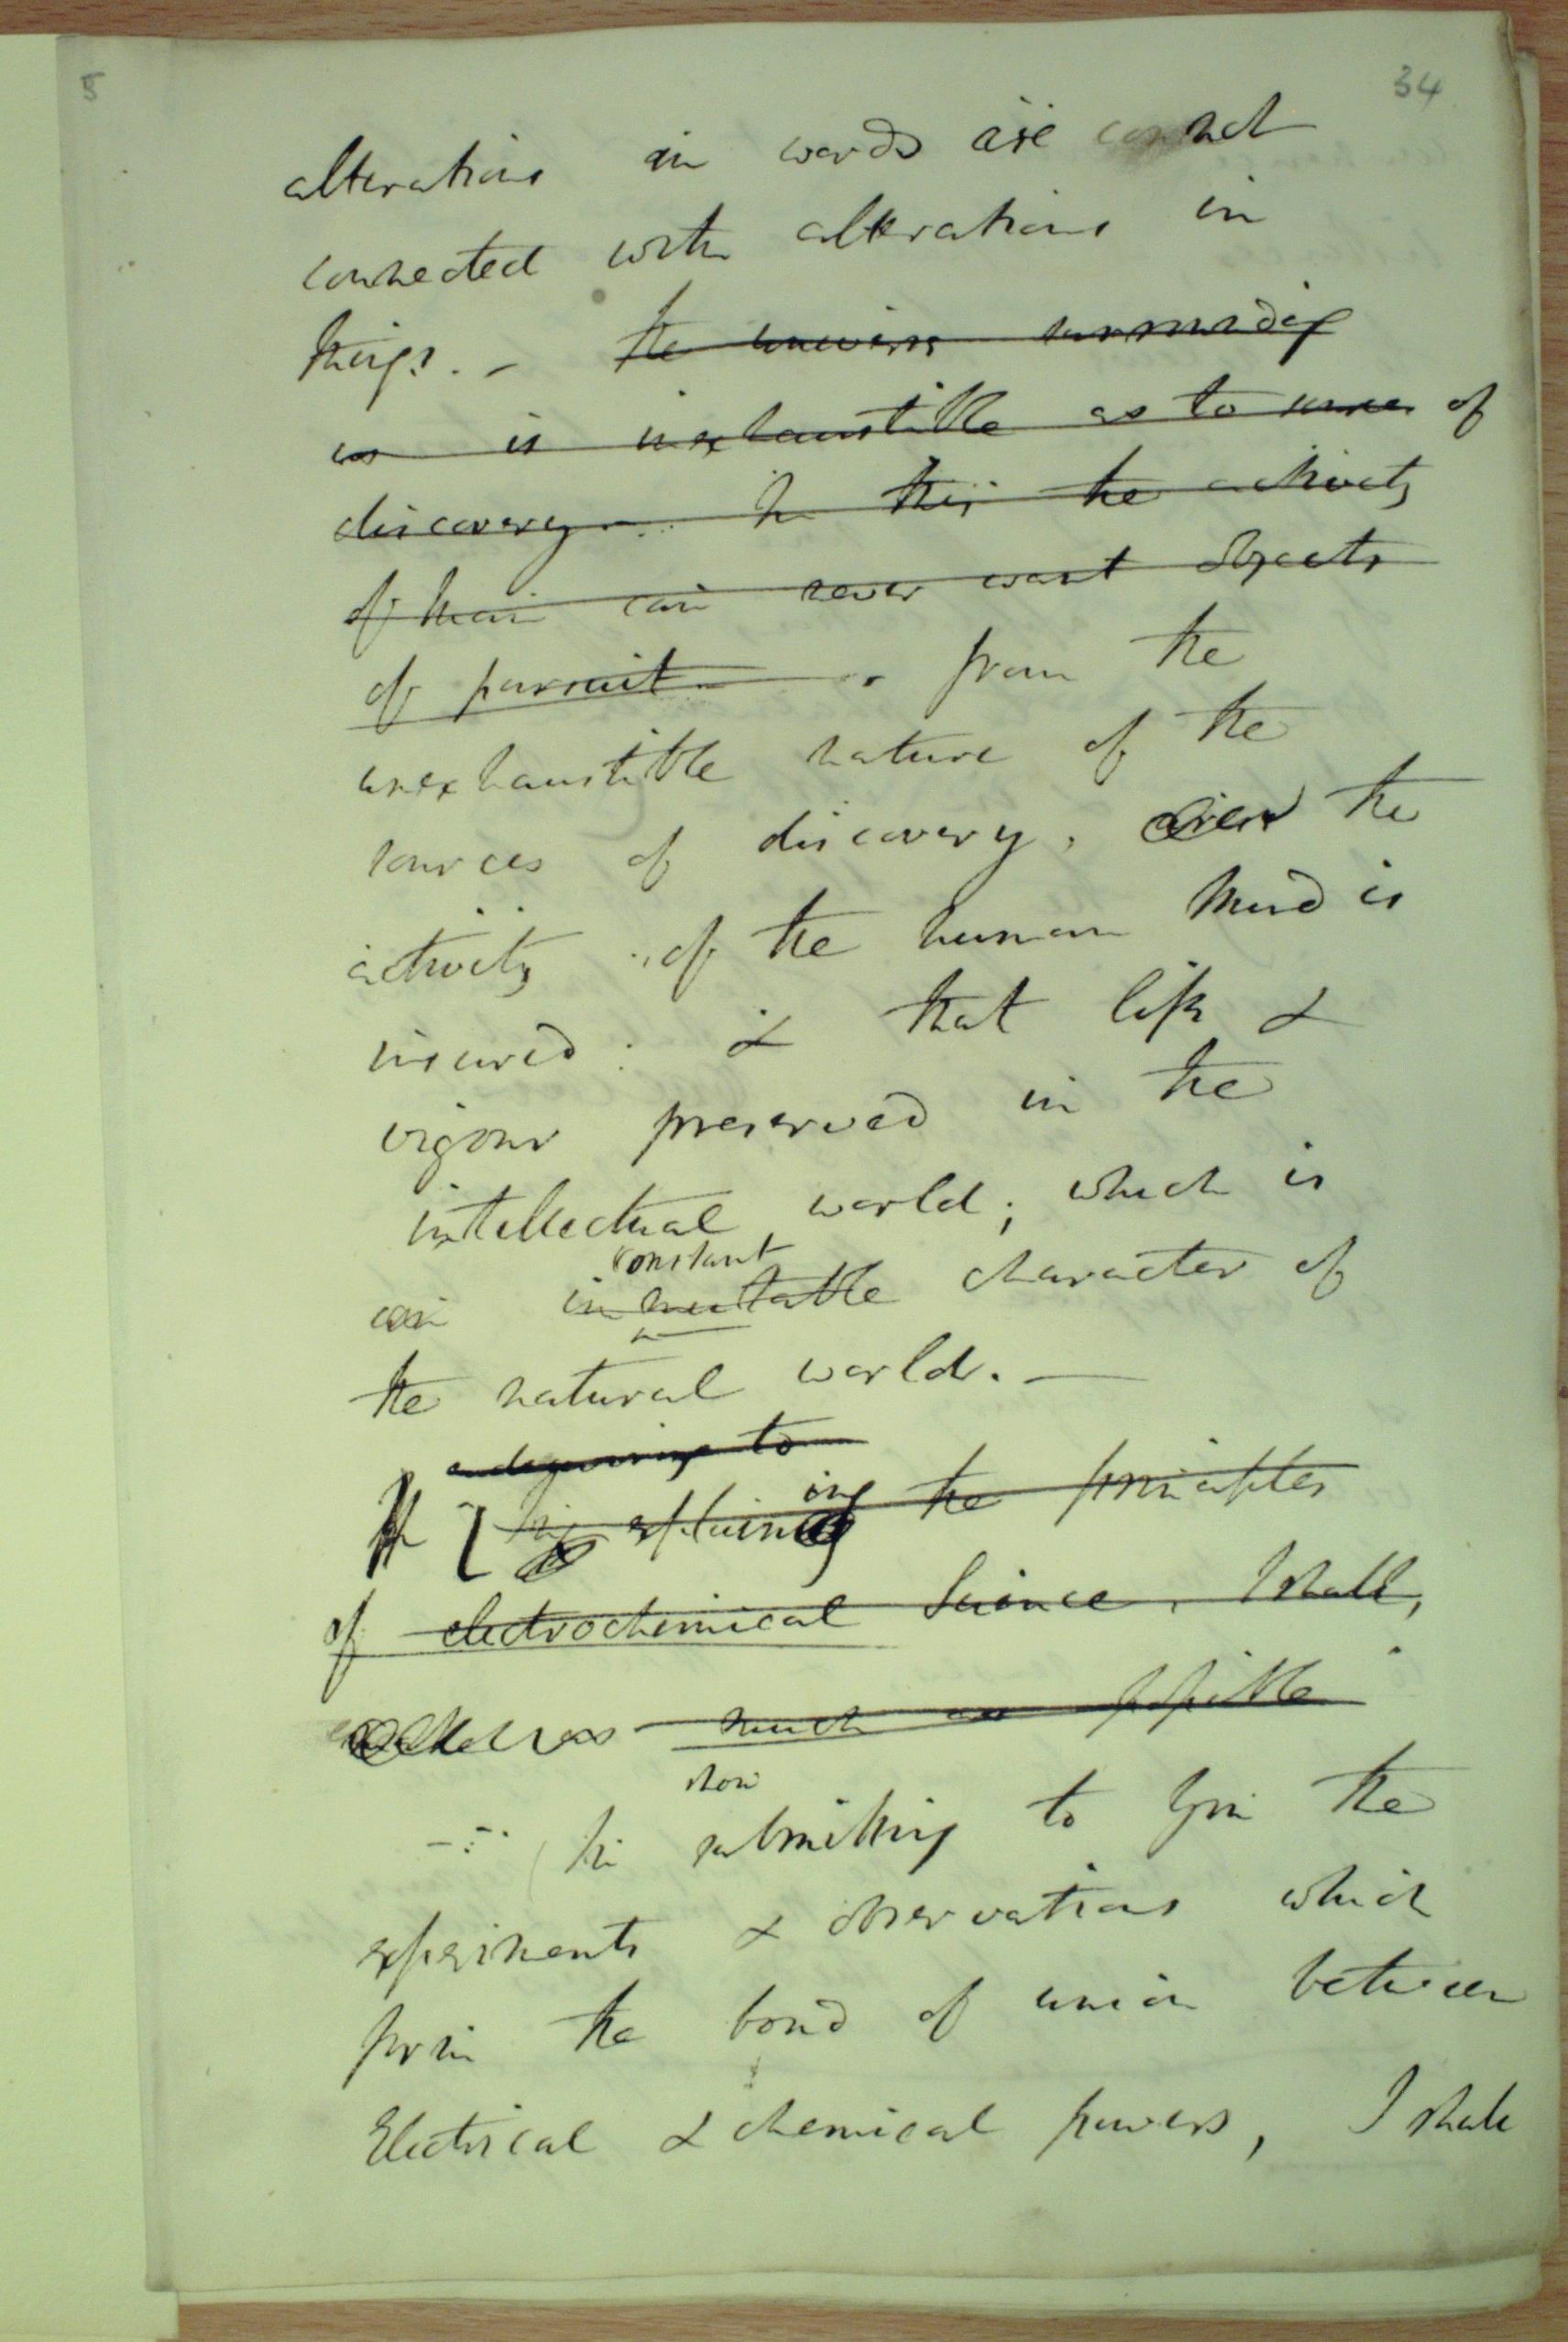 5
34
alterations in words are not
connected with alterations in
things. - the universe surrounding
us is inexhaustible as to sources of
discovery - In this the activity
of man can never want objects
of pursuit - from the
unexhaustible nature of the
sources of discovery, the
activity of the human Mind is
insured: & that life &
vigour preserved in the
intellectual world; which is
constant
an immutable character of
the natural world. -
endeavouring to
In explaining the principles
of electrochemical Science, I shall,
much as possible
In submitting to You the
experiments & observations which
form the bond of union between
Electrical & chemical powers, I shall